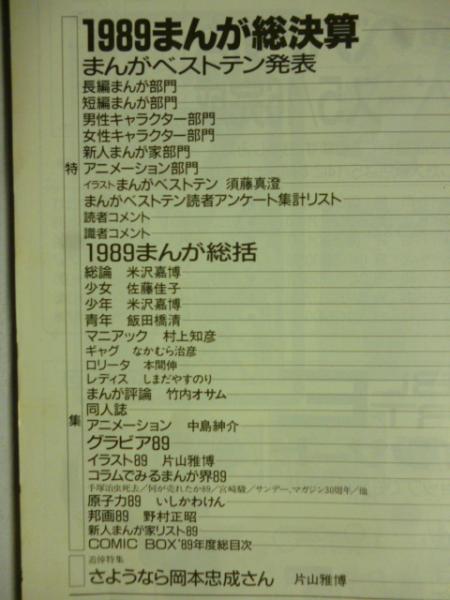 1989まんが総決算
まんがベストテン発表
長編まんが部門
短編まんが部門
男性キャラクター部門
女性キャラクター部門
新人まんが家部門
特
アニメーション部門
イラストまんがベストテン 須藤真澄
まんがベストテン読者アンケート集計リスト
読者コメント
識者コメント
1989まんが総括
総論 米沢嘉博
少女 佐藤佳子
少年 米沢嘉博
青年 飯田橋清
マニアック 村上知彦
ギャグ なかむら治彦
ロリータ 本間伸
レディス しまだやすのり
まんが評論 竹内オサム
集
同人誌
アニメーション 中島紳介
グラビア89
イラスト89 片山雅博
コラムでみるまんが界89
手塚治虫死去/何が売れたか89/宮崎駿/サンデー、マガジン30周年/他
原子力89 いしかわけん
邦画89 野村正昭
新人まんが家リスト89
COMIC BOX'89年度総目次
追悼特集
さようなら岡本忠成さん 片山雅博